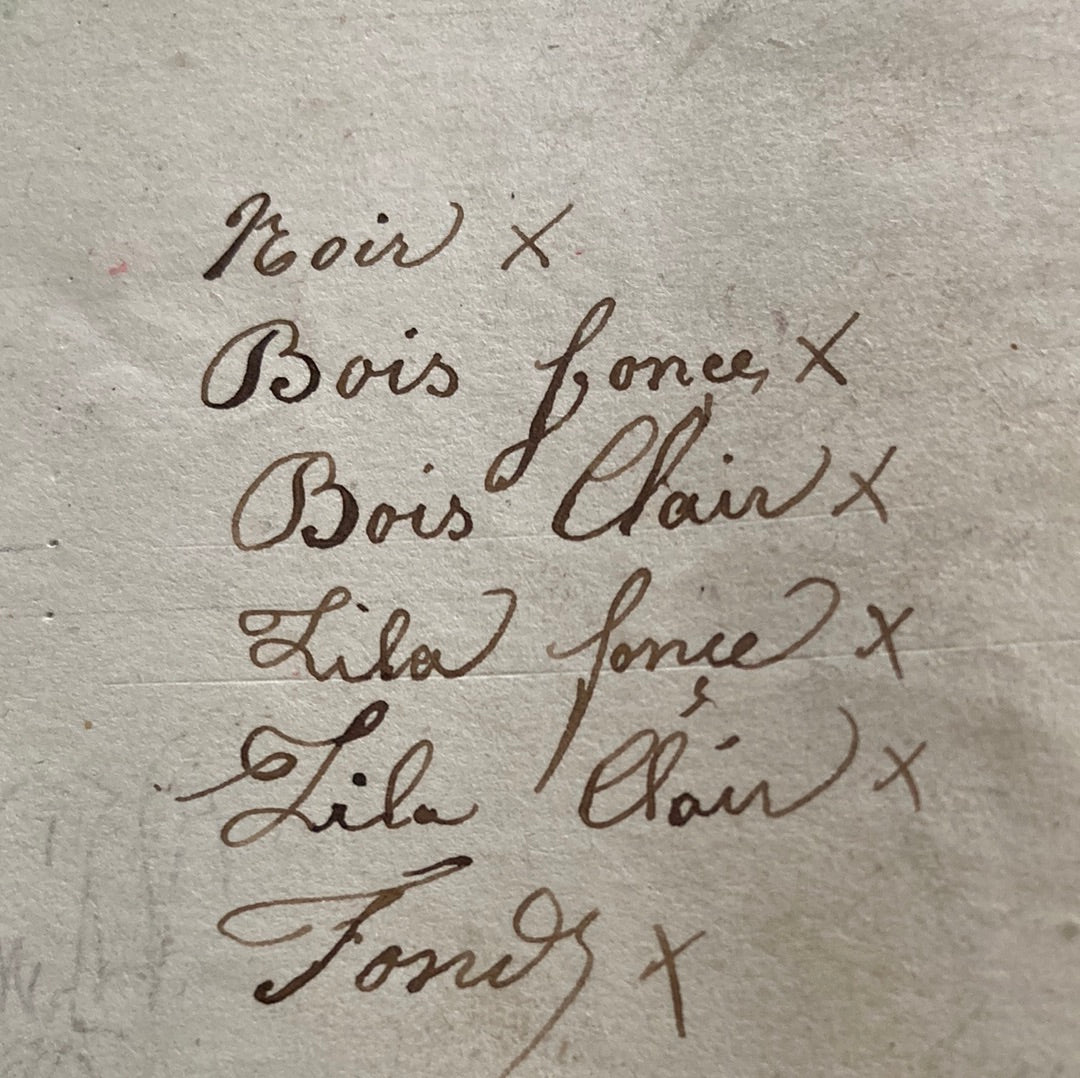 Noir x
Bois foncé x
Bois Clair x
Lila fonçe x
Lila Clair x
Fonds x